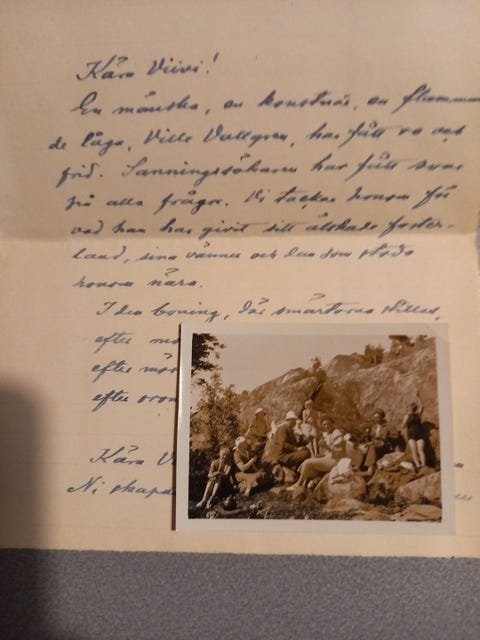 Kära Viivi!
En mänska, en konstnär, en flamman
de låga, Ville Vallgren, har fått ro och
frid. Sanningssökaren har fått svar
på alla frågor. Vi tackar honom för
vad han har givit sitt älskade foster-
land, sina vänner och den som stodo
honom nära.
I den boning, där smärtorna stillas,
efter
efter
efter
Kära V
Ni skapa